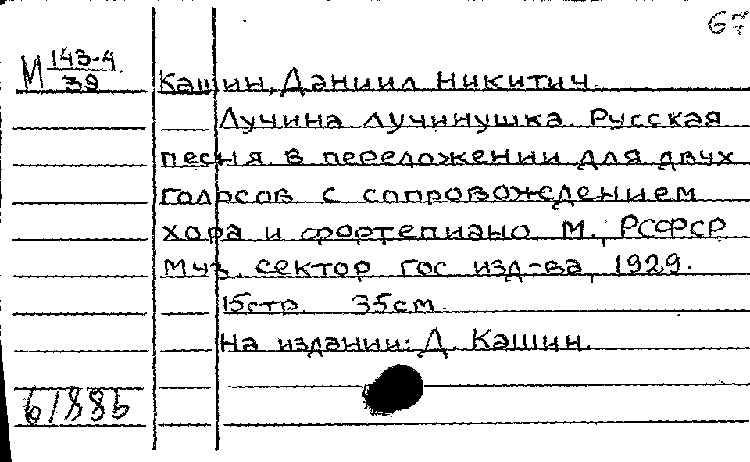 67
М 143-4
39
Кашин, Даниил Никитич.
Лучина лучинушка. Русская
песня в переложении для двух
голосов с сопровождением
хора и фортепиано. М., РСФСР
Муз. сектор гос. изд-ва, 1929.
15стр. 35см.
На издании: Д. Кашин.
61886